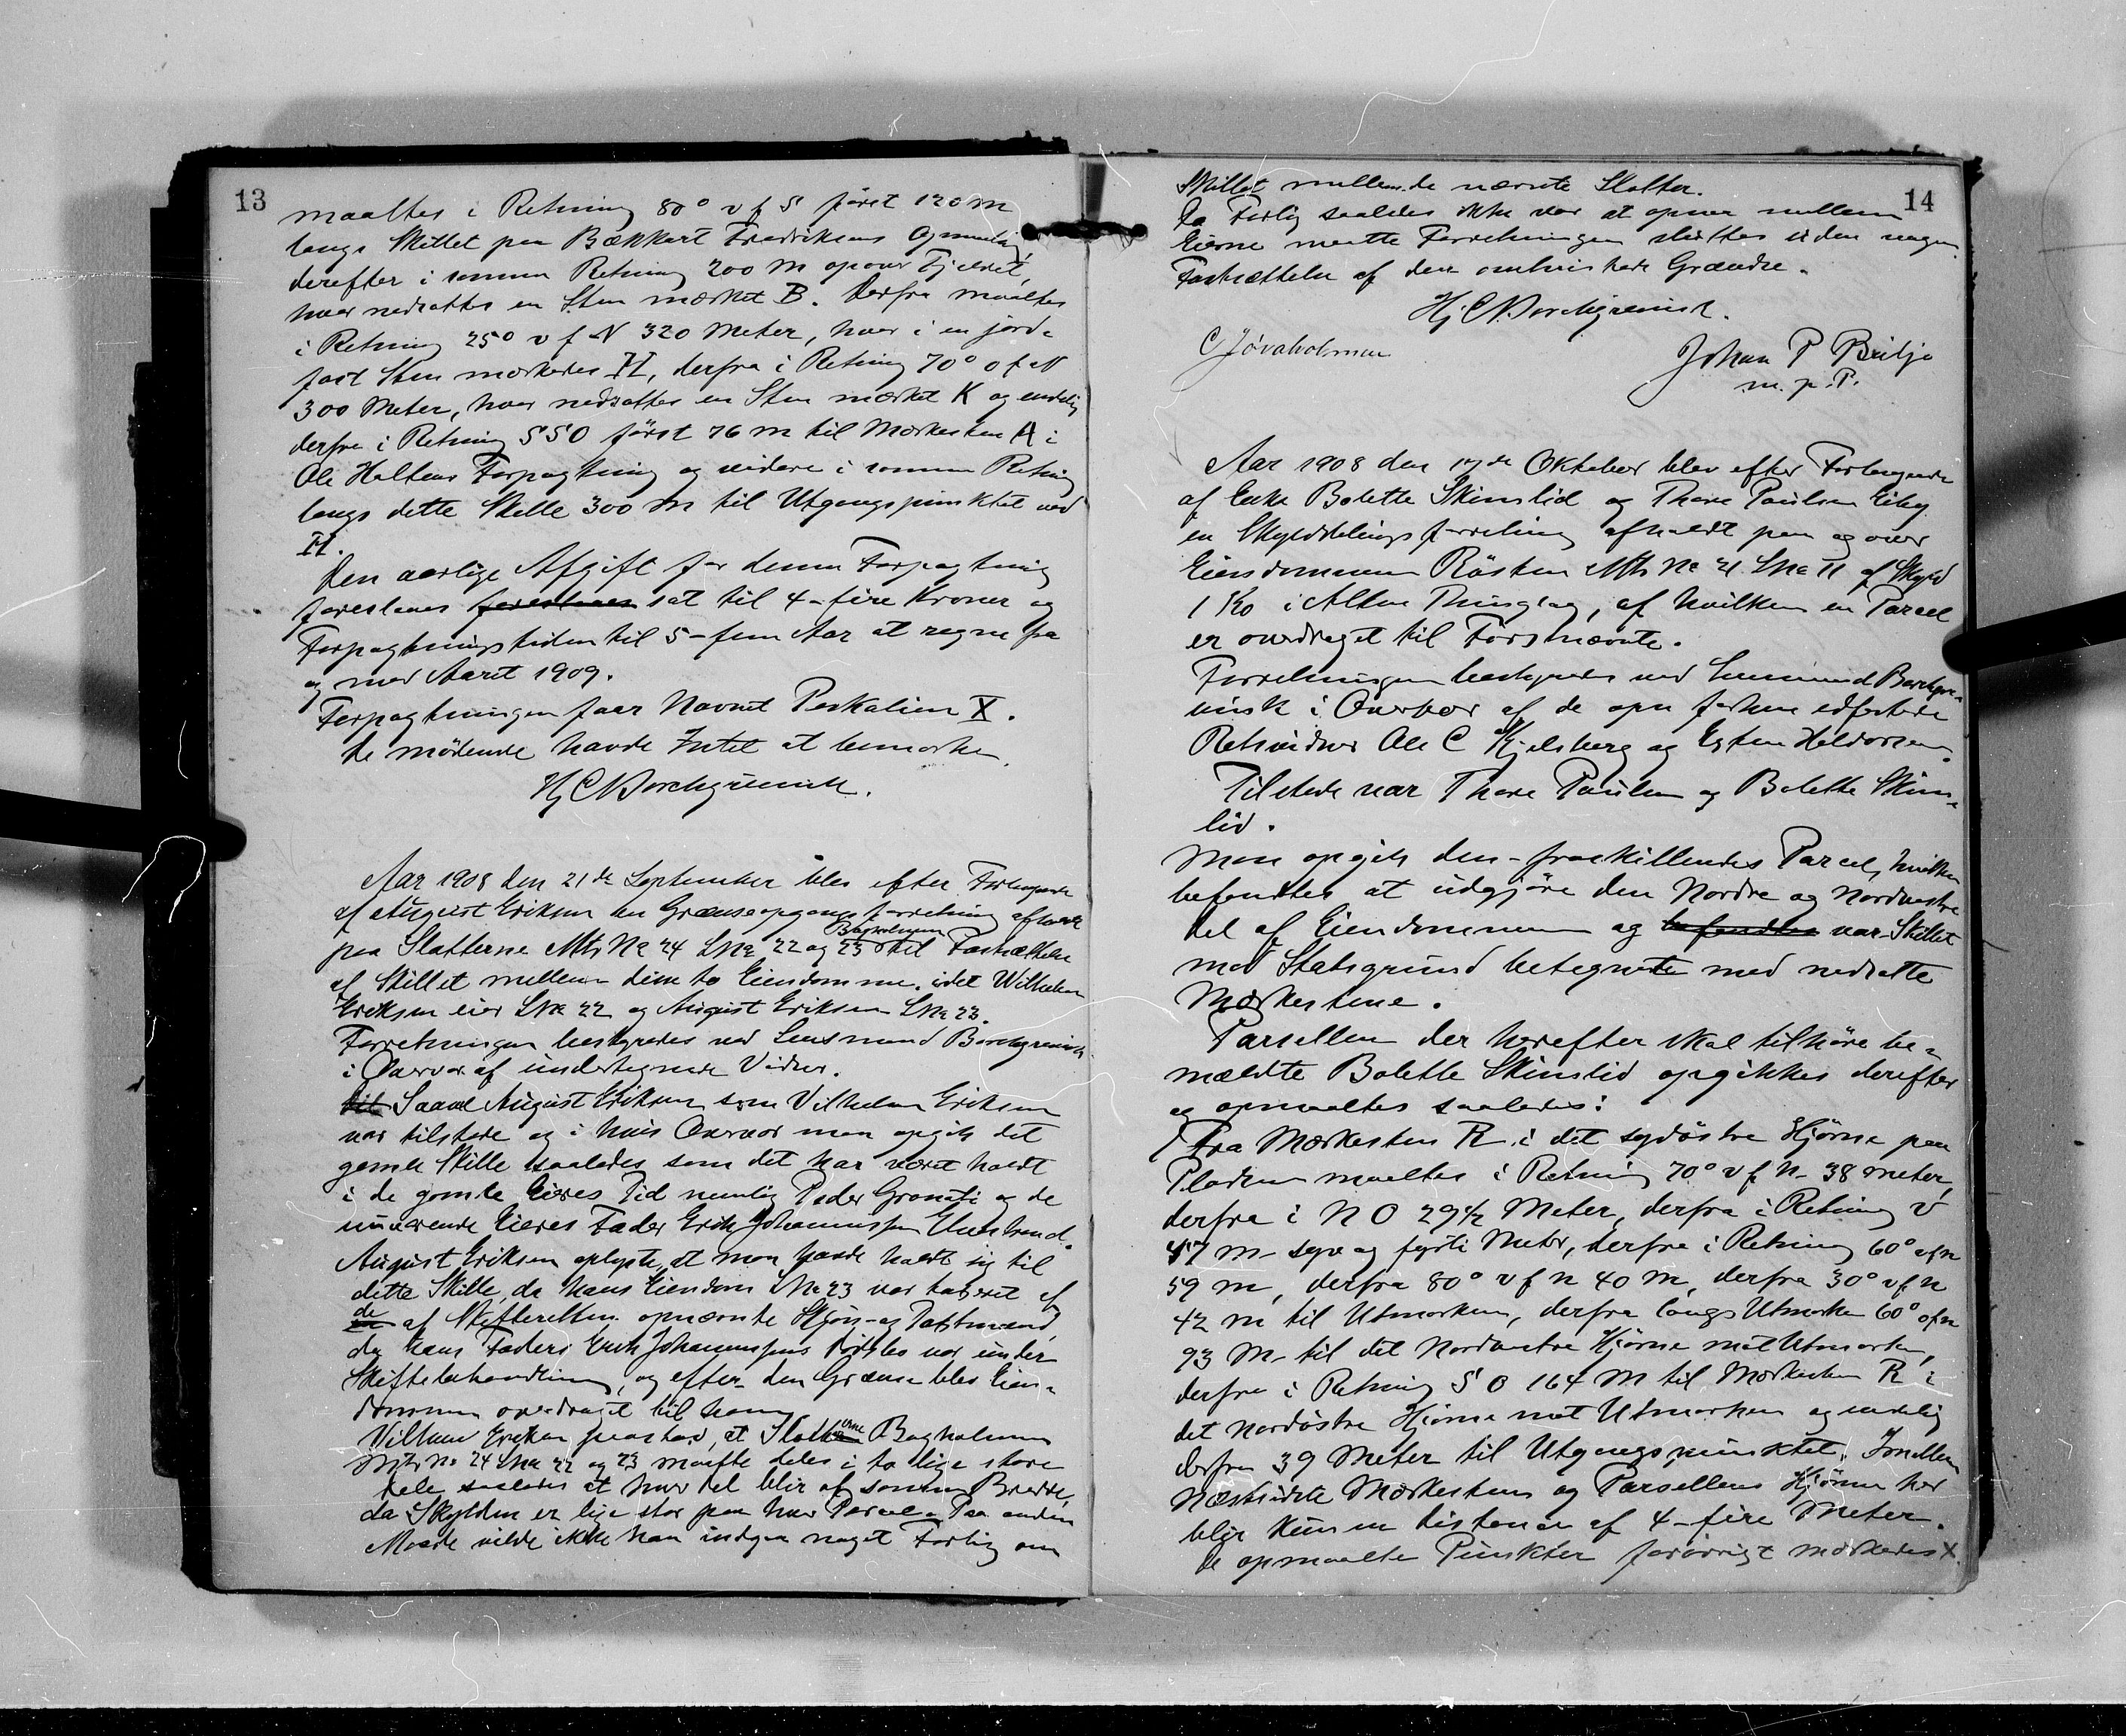 13
maaltes i Retning 80° v f S först 120 m
langs Skillet paa Bækkert Fredriksens Opmaaling,
derefter i samme Retning 200 m opover Fjeldet,
hvor nedsattes en Sten mærket B. Derfra maaltes
i Retning 25° v f N 320 Meter, hvor i en jord-
fast Sten mærkedes H, derfra i Retning 70° o f N
300 Meter, hvor nedsattes en Sten mærket K og endelig
derfra i Retning S S O först 76 m til Mærkesten H i
Ole Haltens Forpagtning og videre i samme Retning
langs dette Skille 300 m til Utgangspunktet ved
H.
Den aarlige Afgift for denne Forpagtning
foreslaaes foreslaaes sat til 4 - fire Kroner og
Forpagtningstiden til 5 - fem Aar at regne fra
og med Aaret 1909.
Forpagtningen faar Navnet Peskalien X.
De mödende havde Intet at bemærke.
Hj C Borchgrevink.
Aar 1908 den 21de September blev efter Forlangende
af August Eriksen en Grænseopgangsforretning afholdt
paa Slatterne Mts No 24 LNo 22 og 23 Bagholmen til Fastsættelse
af Skillet mellem disse to Eiendomme, idet Wilhelm
Eriksen eier LNo 22 og August Eriksen LNo 23.
Forretningen bestyredes ved Lensmand Borchgrevink
i Overvær af undertegnede Vidner.
til Saavel August Eriksen som Vilhelm Eriksen
var tilstede og i hvis Overvær man opgik det
gamle Skille saaledes som det har været holdt
i de gamle Eieres Tid nemlig Peder Granati og de
nuværende Eieres Fader Erik Johannessen
August Eriksen oplyste, at man havde holdt sig til
dette Skille, da hans Eiendom LNo 23 var taxeret af
de af Skifteretten opnævnte Skjöns- og Taxtmænd,
da hans Faders Erik Johannessens Dödsbo var under
Skiftebehandling, og efter den Grænse blev Eien-
dommen overdraget til ham
Vilhelm Eriksen paastod, at Slatterne Bagholmen
Mts No 24 LNo 22 og 23 maatte deles i to lige store
Dele saaledes at hver Del blir af samme Bredde,
da Skylden er lige stor paa hver Parcel. Paa anden
Maade vilde ikke han indgaa noget Forlig om
14
Skillet mellem de nævnte Slatter.
Da Forlig saaledes ikke var at opnaa mellem
Eierne maatte Forretningen sluttes uden nogen
Fastsættelse af den omtvistede Grændse.
Hj C Borchgrevink.
C Jövaholmen
Johan P Briljo
m. p. P.
Aar 1908 den 17de Oktober blev efter Forlangende
af Enke Bolette Skimslid og Thore Paulsen Eiby
en Skylddelingsforretning afholdt paa og over
Eiendommen Rösten Mts No 21 LNo 11 af Skyld
1 Ko i Alten Thinglag, af hvilken en Parcel
er overdraget til Förstnævnte.
Forretningen bestyredes ved Lensmand Borchgre-
vink i Overvær af de dertil forhen edfæstede
Retsvidner Ole C Kjelsberg og Esten Heldorsen.
Tilstede var Thore Paulsen og Bolette Skims-
lid.
Man opgik den fraskillendes Parcel, hvilken
befandtes at udgjöre den Nordre og Nordvestre
Del af Eiendommen og befandtes var Skillet
mod Statsgrund betegnet med nedsatte
Mærkestene.
Parsellen der herefter skal tilhöre be-
mældte Bolette Skimslid opgikkes derefter
og opmaaltes saaledes:
Fra Mærkesten R i det sydöstre Hjörne paa
Pladsen maaltes i Retning 70° v f N 38 meter,
derfra i N O 29 1/2 Meter, derfra i Retning V
47 m - syv og fyrti Meter, derfra i Retning 60° v f n
59 m, derfra 80° v f n 40 m, derfra 30° v f n
42 m til Utmarken, derfra langs Utmarken 60° o f n
93 m til det Nordvestre Hjörne mot Utmarken,
derfra i Retning S O 164 m til Mærkesten R i
det nordöstre Hjörne mot Utmarken og endelig
derfra 39 Meter til Utgangspunktet. Imellem
Næstsidste Mærkesten og Parsellens Hjörne her
blir kun en Distance af 4 - fire Meter.
De opmaalte Punkter forövrigt mærkedes X.